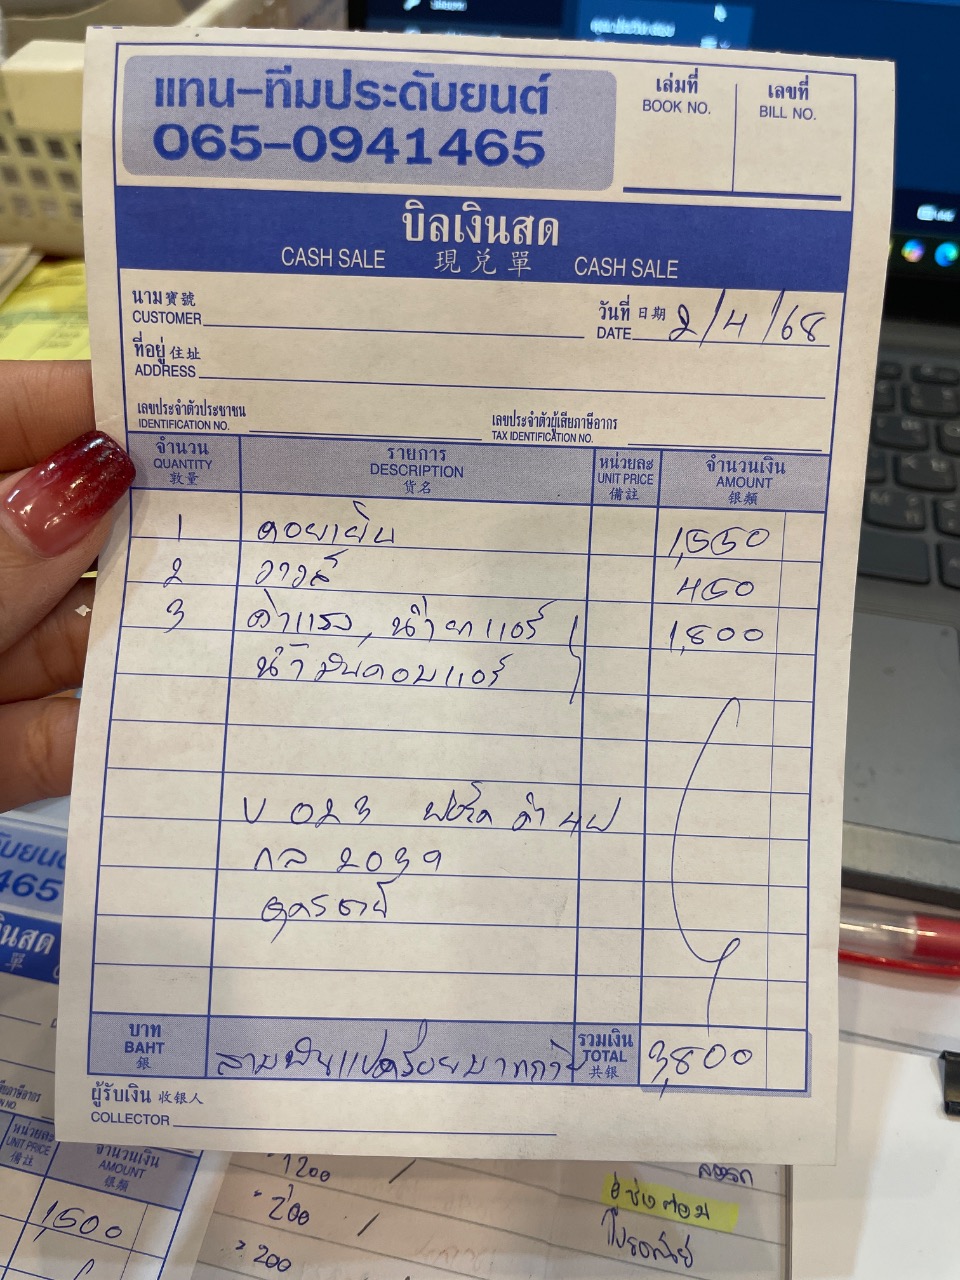 แทน-ทีมประดับยนต์
065-0941465
เล่มที่
BOOK NO.
เลขที่
BILL NO.
บิลเงินสด
CASH SALE 現兑單 CASH SALE
นาม寶號
CUSTOMER
วันที่ 日期
DATE 2/4/68
ที่อยู่ 住址
ADDRESS
เลขประจำตัวประชาชน
IDENTIFICATION NO.
เลขประจำตัวผู้เสียภาษีอากร
TAX IDENTIFICATION NO.
จำนวน
QUANTITY
數量
รายการ
DESCRIPTION
貨名
หน่วยละ
UNIT PRICE
備註
จำนวนเงิน
AMOUNT
银額
1 คอยเย็น 1,550
2 วาวล์ 450
3 ค่าแรง, น้ำยาแอร์ 1,800
น้ำมันคอมแอร์
V 023 ฟอร์ด ดำ 4ป
กล 2039
อุดรธานี
บาท
BAHT
銀
สามพันแปดร้อยบาทถ้วน
รวมเงิน
TOTAL
共银
3,800
ผู้รับเงิน 收银人
COLLECTOR
465
หน่วยละ
UNIT PRICE
備註
จำนวนเงิน
AMOUNT
银額
1,500
1200
200
200